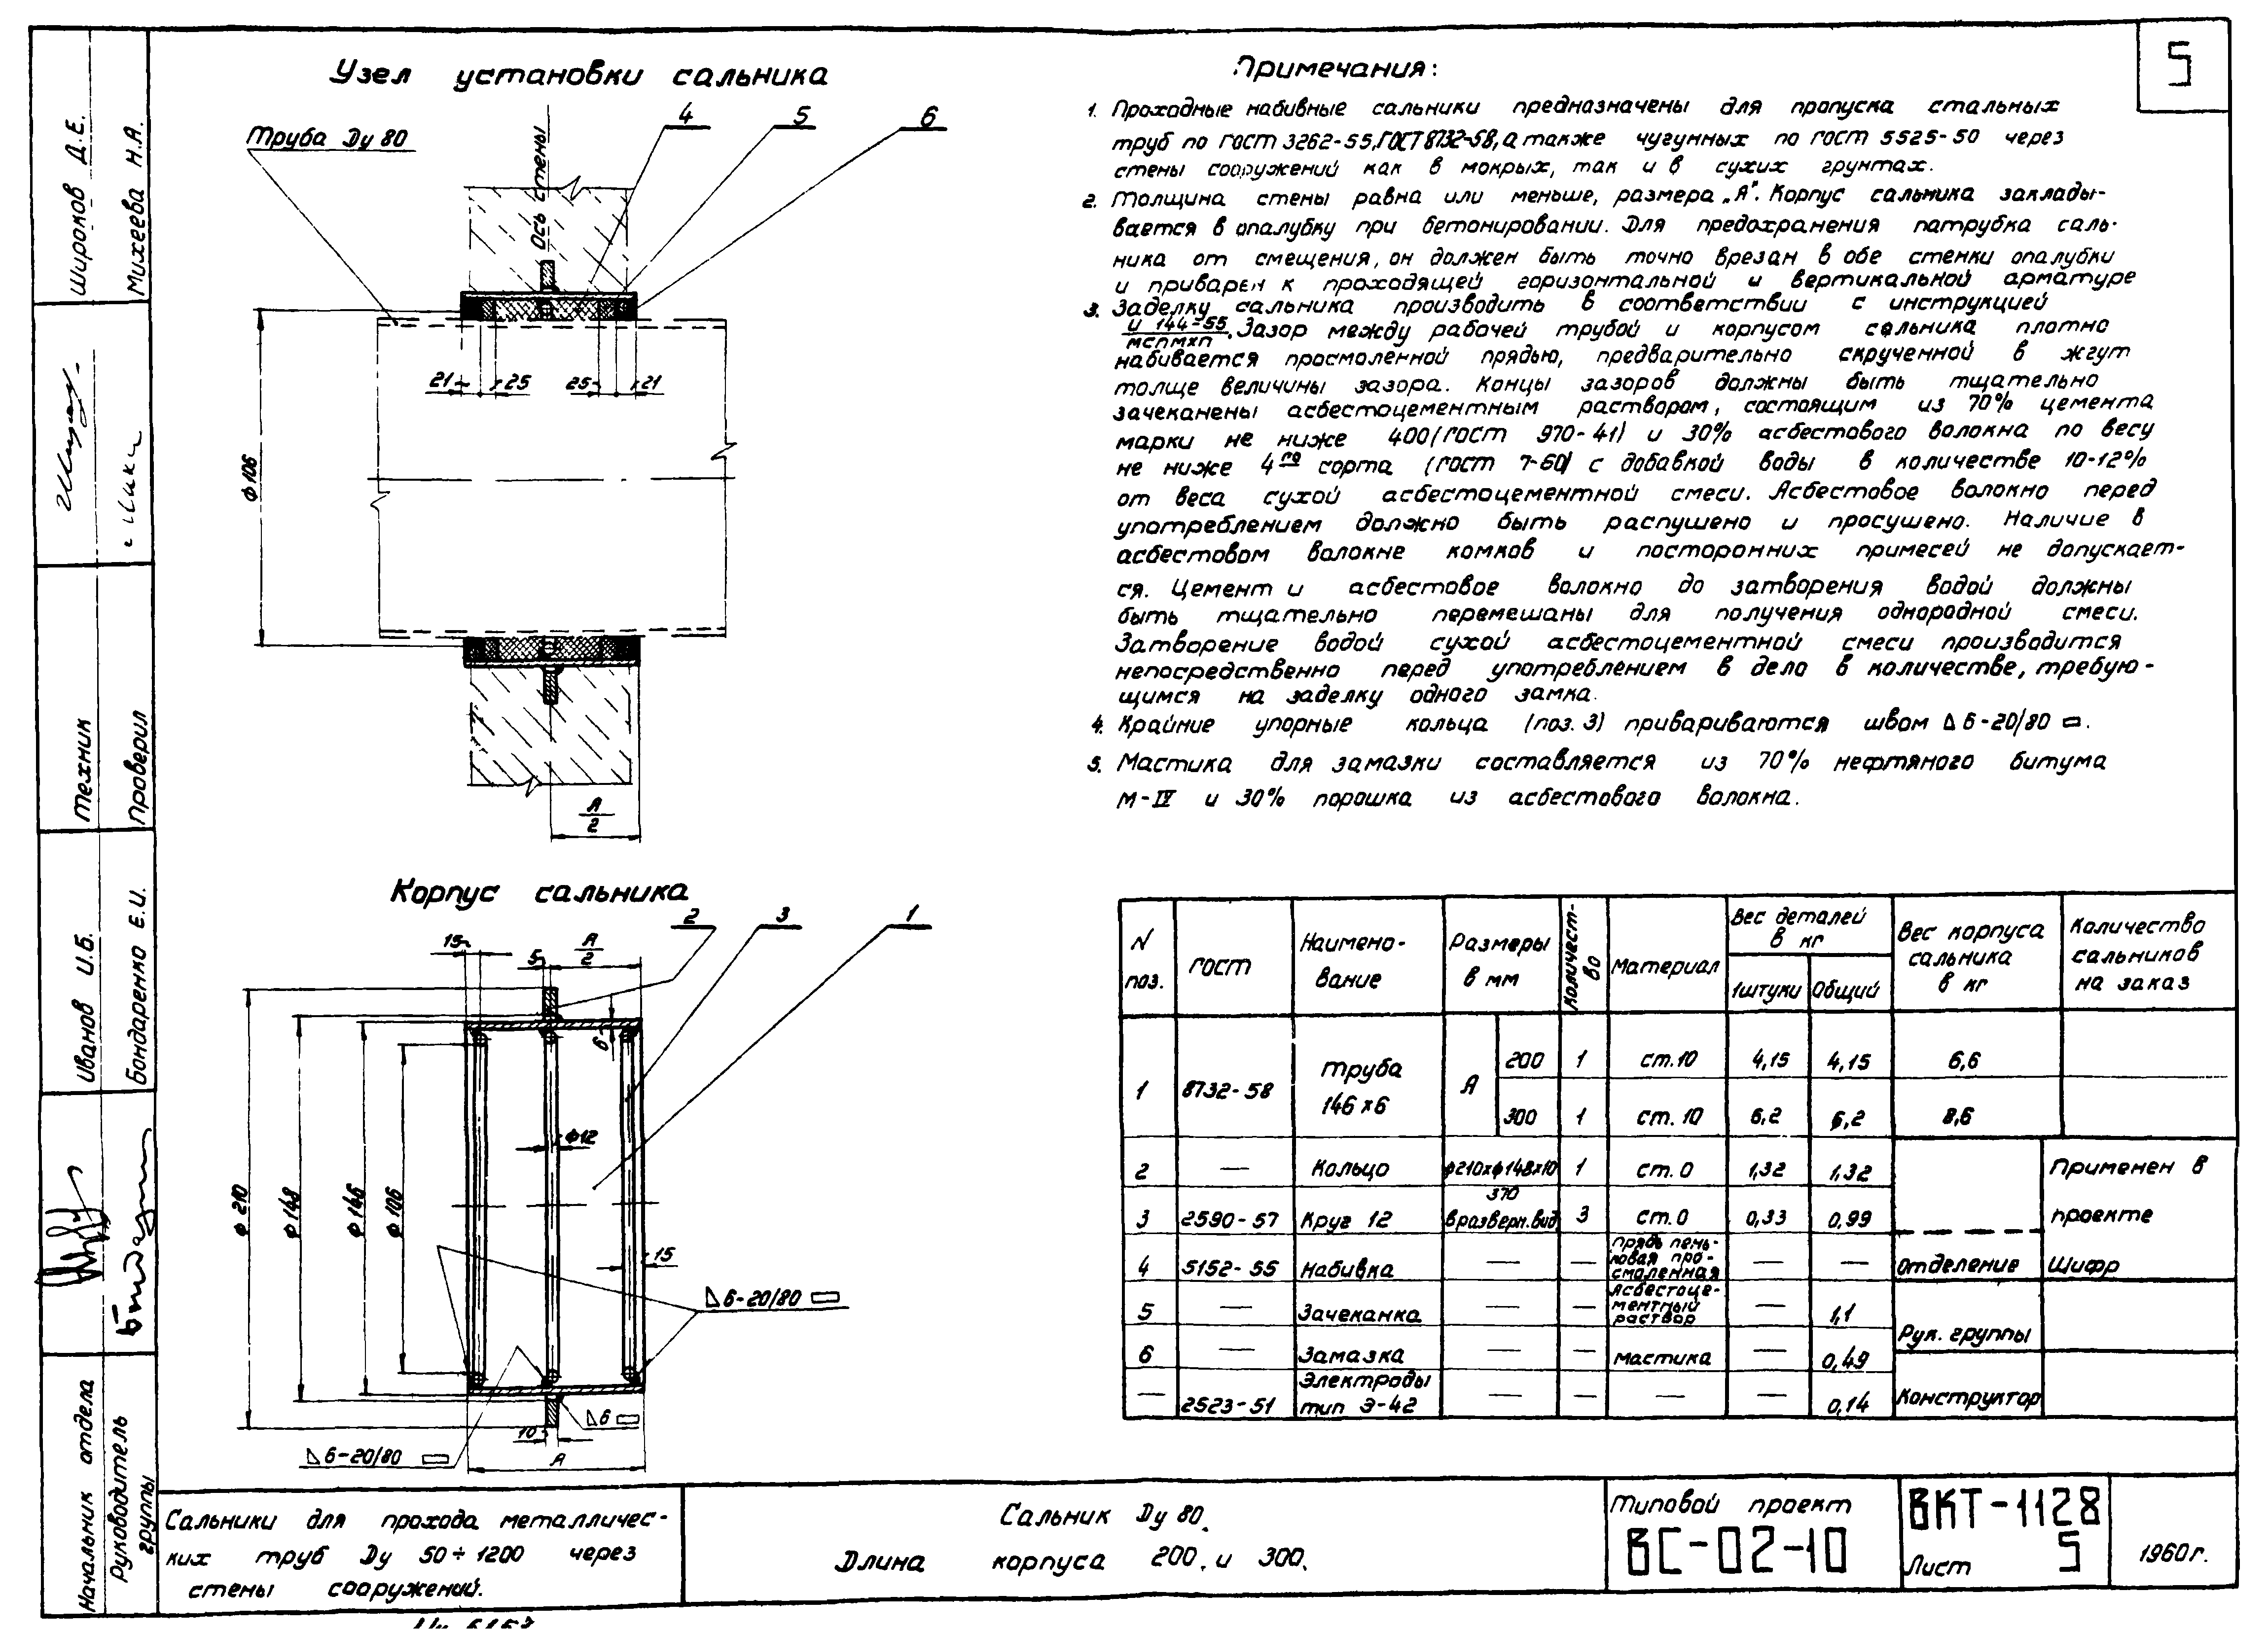 5
Узел установки сальника
Труба Ду 80
Ось стены
4
5
6
ф 106
21
25
25
21
А
2
Корпус сальника
2
3
1
15
5
А
2
6
ф 210
ф 148
ф 146
ф 106
ф12
15
6-20/80
6
10
6-20/80
А
Примечания:
1. Проходные набивные сальники предназначены для пропуска стальных
труб по ГОСТ 3262-55, ГОСТ 8732-58, а также чугунных по ГОСТ 5525-50 через
стены сооружений как в мокрых, так и в сухих грунтах.
2. Толщина стены равна или меньше, размера „А". Корпус сальника заклады-
вается в опалубку при бетонировании. Для предохранения патрубка саль-
ника от смещения, он должен быть точно врезан в обе стенки опалубки
и приварен к проходящей горизонтальной и вертикальной арматуре
3. Заделку сальника производить в соответствии с инструкцией
И 144-55
МСПМХП
. Зазор между рабочей трубой и корпусом сальника плотно
набивается просмоленной прядью, предварительно скрученной в жгут
толще величины зазора. Концы зазоров должны быть тщательно
зачеканены асбестоцементным раствором, состоящим из 70% цемента
марки не ниже 400 (ГОСТ 970-41) и 30% асбестового волокна по весу
не ниже 4го сорта (ГОСТ 7-60) с добавкой воды в количестве 10-12%
от веса сухой асбестоцементной смеси. Асбестовое волокно перед
употреблением должно быть распушено и просушено. Наличие в
асбестовом волокне комков и посторонних примесей не допускает-
ся. Цемент и асбестовое волокно до затворения водой должны
быть тщательно перемешаны для получения однородной смеси.
Затворение водой сухой асбестоцементной смеси производится
непосредственно перед употреблением в дело в количестве, требую-
щимся на заделку одного замка.
4. Крайние упорные кольца (поз. 3) привариваются швом 6-20/80.
5. Мастика для замазки составляется из 70% нефтяного битума
М-IV и 30% порошка из асбестового волокна.
N поз. ГОСТ Наимено-вание Размеры в мм Количест-во Материал Вес деталей в кг 1штуки Общий Вес корпуса сальника в кг Количество сальников на заказ
1 8732-58 Труба 146х6 А 200 1 ст.10 4,15 4,15 6,6
300 1 ст.10 6,2 6,2 8,6
2 — Кольцо ф210хф148х10 1 ст.0 1,32 1,32
3 2590-57 Круг 12 370 в разверн.вид 3 ст.0 0,33 0,99
4 5152-55 Набивка — — прядь пень-ковая про-смоленная — —
5 — Зачеканка — — Асбестоце-ментный раствор — 1,1
6 — Замазка — — мастика — 0,49
— 2523-51 Электроды тип Э-42 — — — — 0,14
Применен в
проекте
Отделение Шифр
Рук. группы
Конструктор
Широков Д.Е.
Михеева Н.А.
Техник
Проверил
Иванов И.Б.
Бондаренко Е.И.
Начальник отдела
Руководитель группы
Сальники для прохода металличес-
ких труб Ду 50÷1200 через
стены сооружений.
Сальник Ду 80.
Длина корпуса 200. и 300.
Типовой проект
ВС-02-10
ВКТ-1128
Лист 5
1960г.